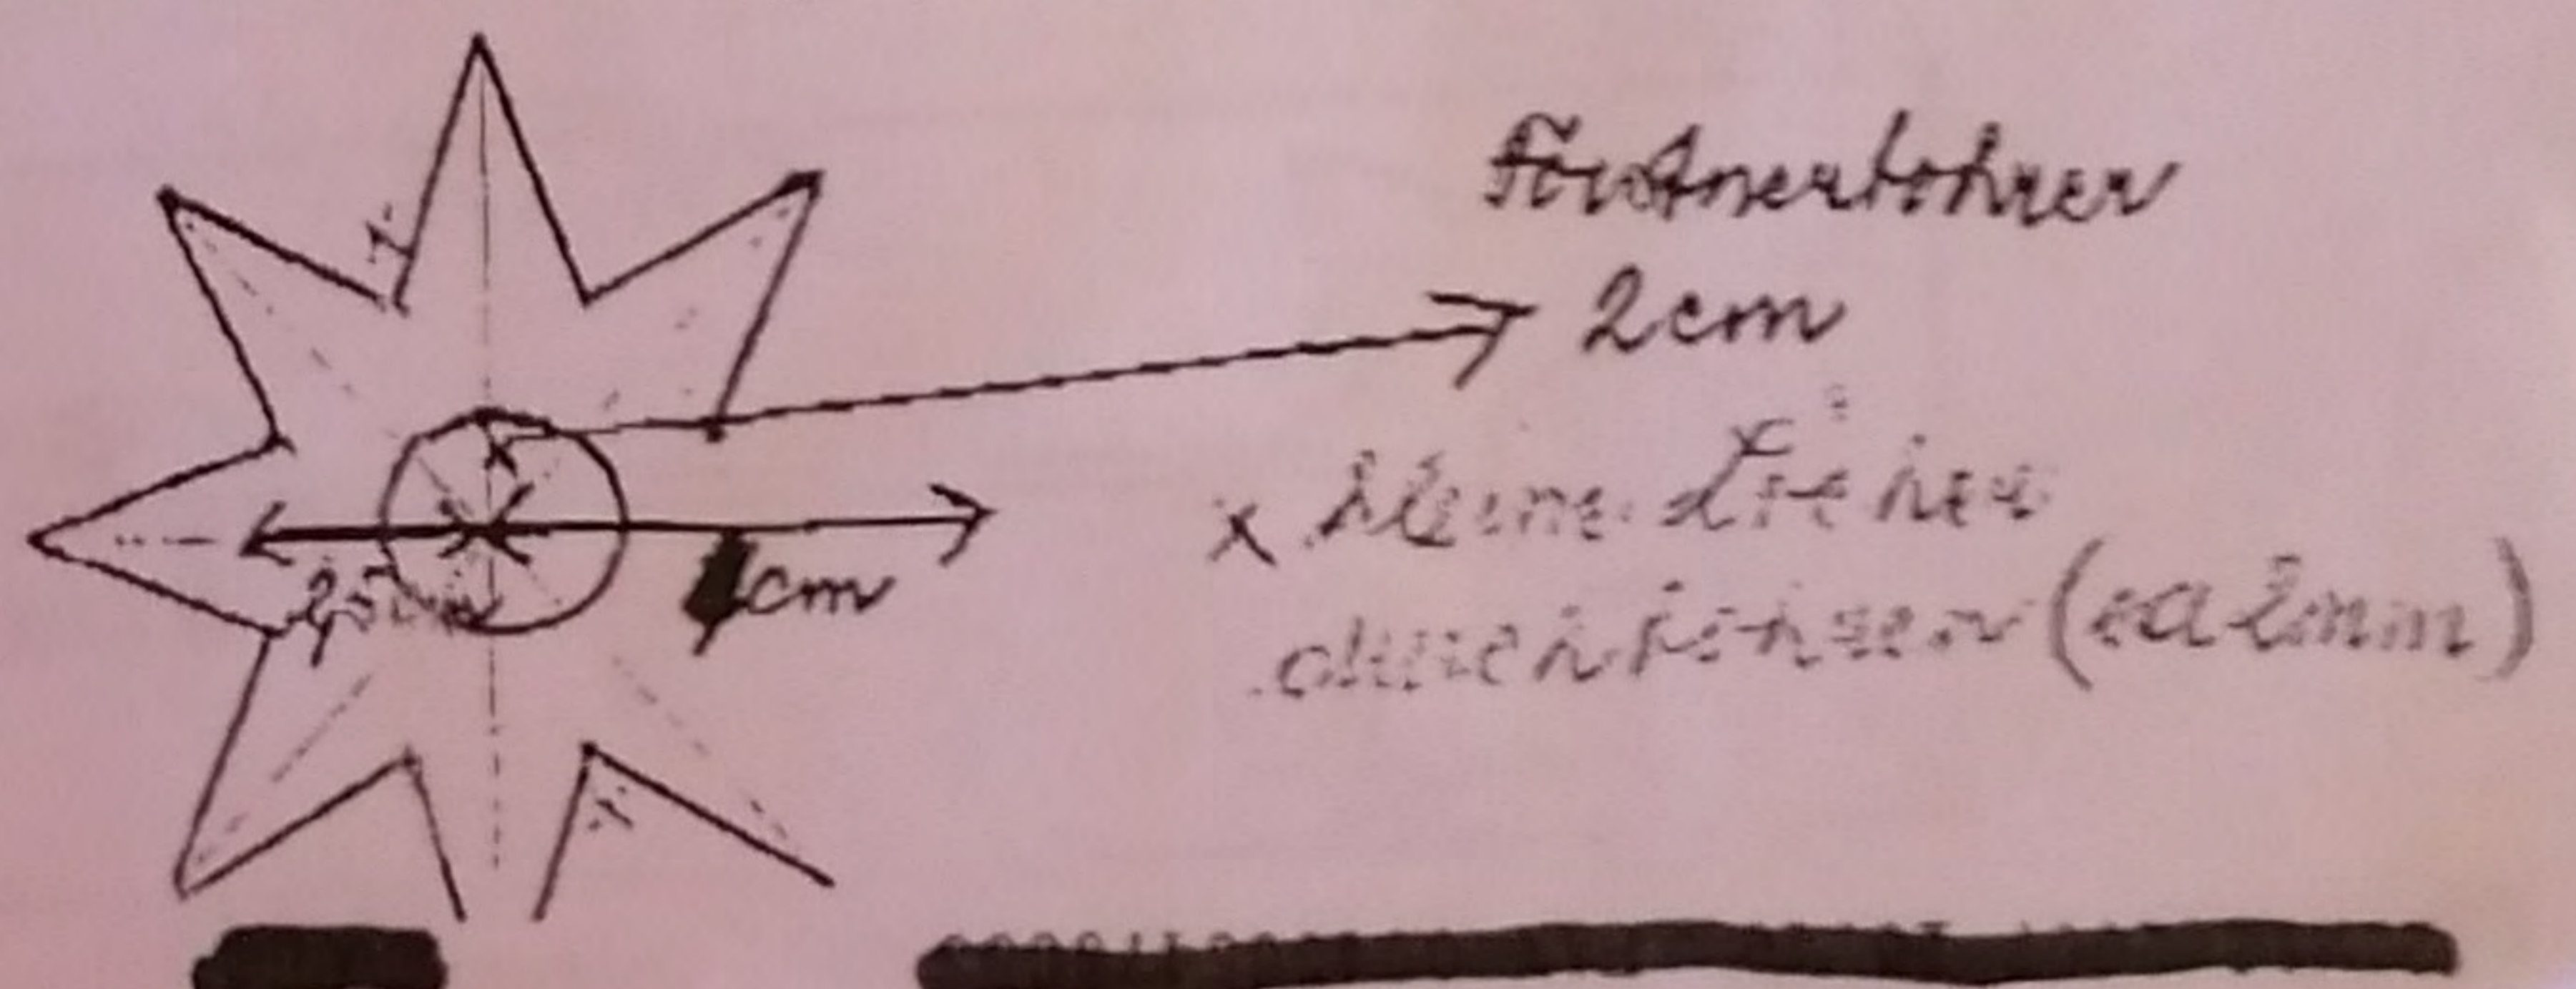 Forstnerbohrer
2 cm
x kleine Löcher
durchbohren (ca 2mm)
2,5 cm
cm